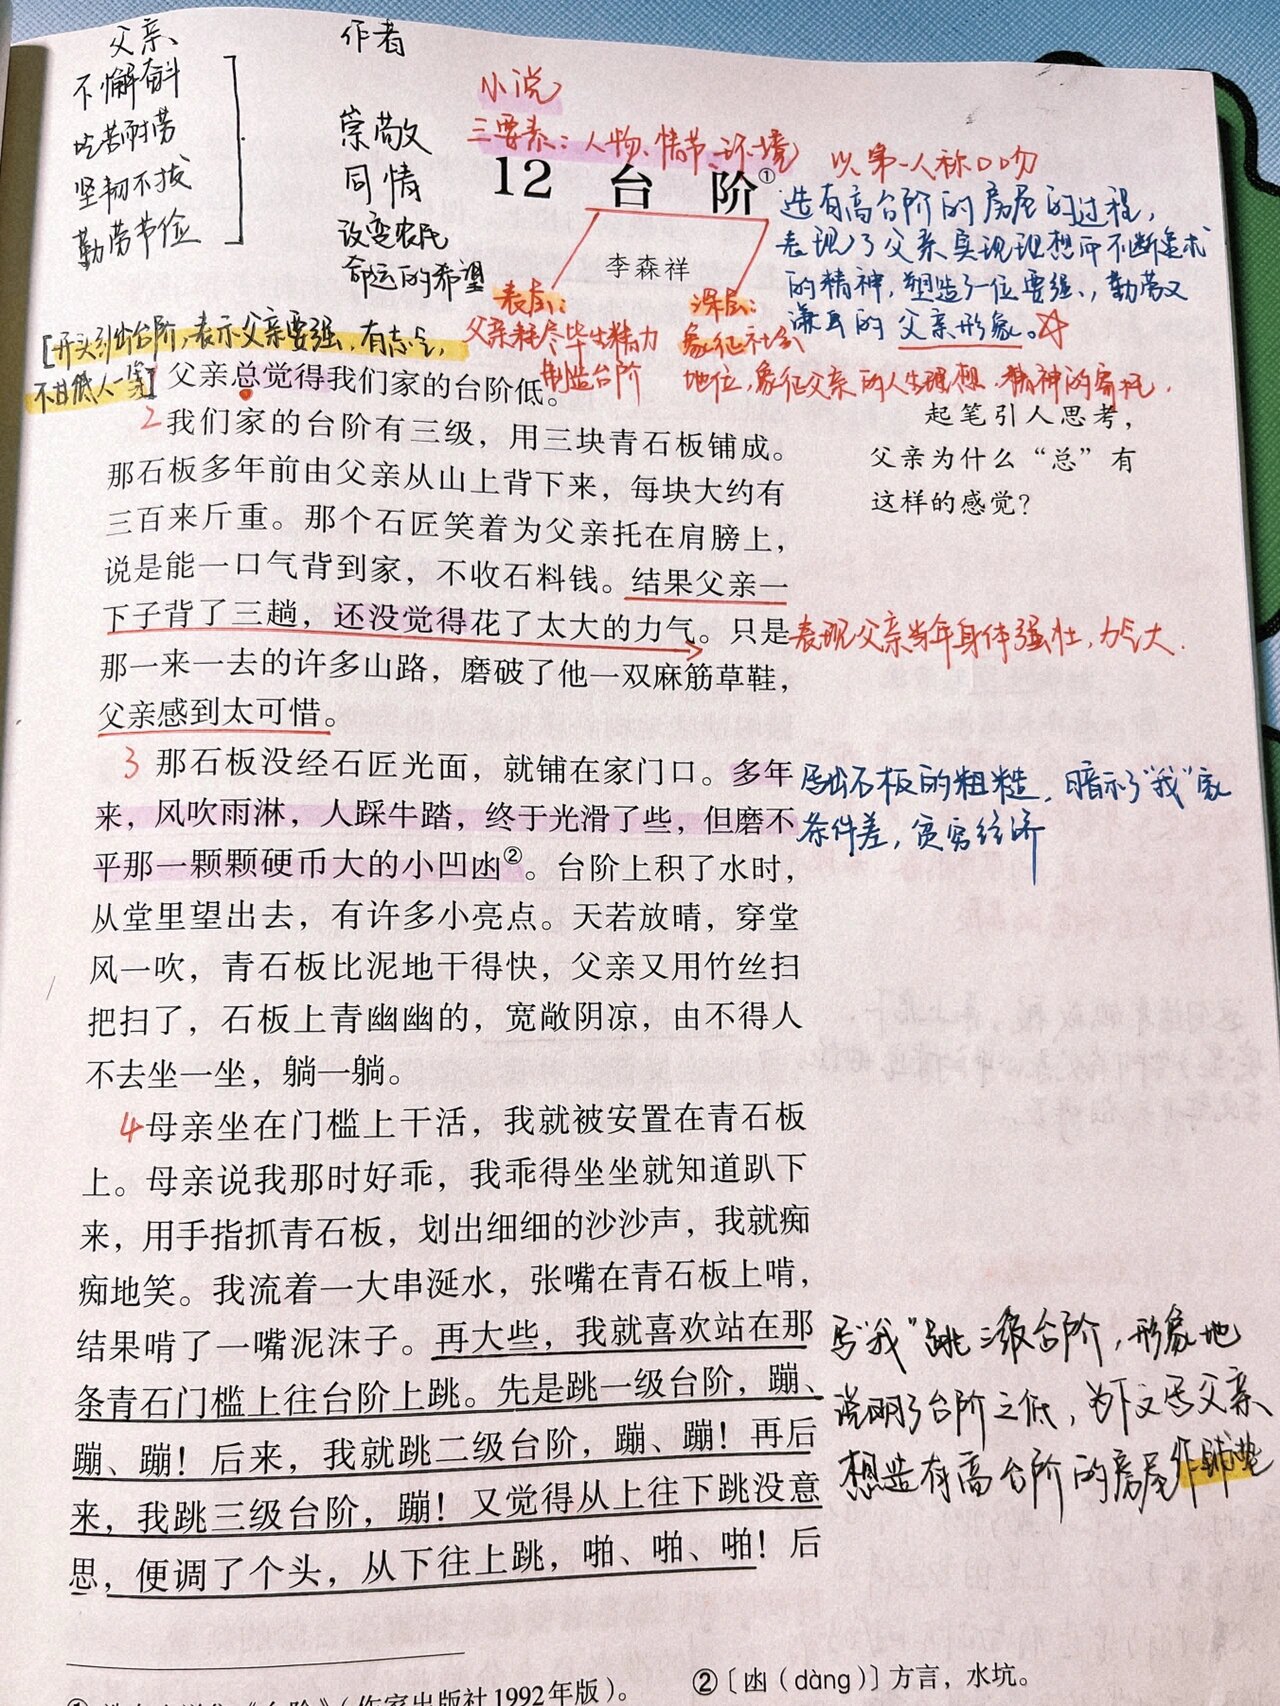 父亲、
不懈奋斗
吃苦耐劳
坚韧不拔
勤劳节俭
作者
崇敬
同情
改变农民
命运的希望
小说
三要素：人物、情节、环境
12 台阶①
李森祥
表层：
父亲耗尽毕生精力
制造台阶
深层：
象征社会
地位，象征父亲的人生理想、精神的寄托.
以第一人称口吻
造有高台阶的房屋的过程，
表现了父亲实现理想而不断追求
的精神，塑造了一位要强、，勤劳又
谦卑的父亲形象。☆
[开头引出台阶，表示父亲要强、有志气，
不甘低人一等]
父亲总觉得我们家的台阶低。
起笔引人思考，
父亲为什么“总”有
这样的感觉？
2 我们家的台阶有三级，用三块青石板铺成。
那石板多年前由父亲从山上背下来，每块大约有
三百来斤重。那个石匠笑着为父亲托在肩膀上，
说是能一口气背到家，不收石料钱。结果父亲一
下子背了三趟，还没觉得花了太大的力气。只是
表现父亲当年身体强壮，力气大.
那一来一去的许多山路，磨破了他一双麻筋草鞋，
父亲感到太可惜。
3 那石板没经石匠光面，就铺在家门口。多年
来，风吹雨淋，人踩牛踏，终于光滑了些，但磨不
平那一颗颗硬币大的小凹凼②。台阶上积了水时，
写出石板的粗糙，暗示了“我”家
条件差，贫穷经济
从堂里望出去，有许多小亮点。天若放晴，穿堂
风一吹，青石板比泥地干得快，父亲又用竹丝扫
把扫了，石板上青幽幽的，宽敞阴凉，由不得人
不去坐一坐，躺一躺。
4 母亲坐在门槛上干活，我就被安置在青石板
上。母亲说我那时好乖，我乖得坐坐就知道趴下
来，用手指抓青石板，划出细细的沙沙声，我就痴
痴地笑。我流着一大串涎水，张嘴在青石板上啃，
结果啃了一嘴泥沫子。再大些，我就喜欢站在那
条青石门槛上往台阶上跳。先是跳一级台阶，蹦、
蹦、蹦！后来，我就跳二级台阶，蹦、蹦！再后
来，我跳三级台阶，蹦！又觉得从上往下跳没意
思，便调了个头，从下往上跳，啪、啪、啪！后
写“我”跳三级台阶，形象地
说明了台阶之低，为下文写父亲
想造有高台阶的房屋作铺垫
（作家出版社1992年版）。
②〔凼（dàng）〕方言，水坑。